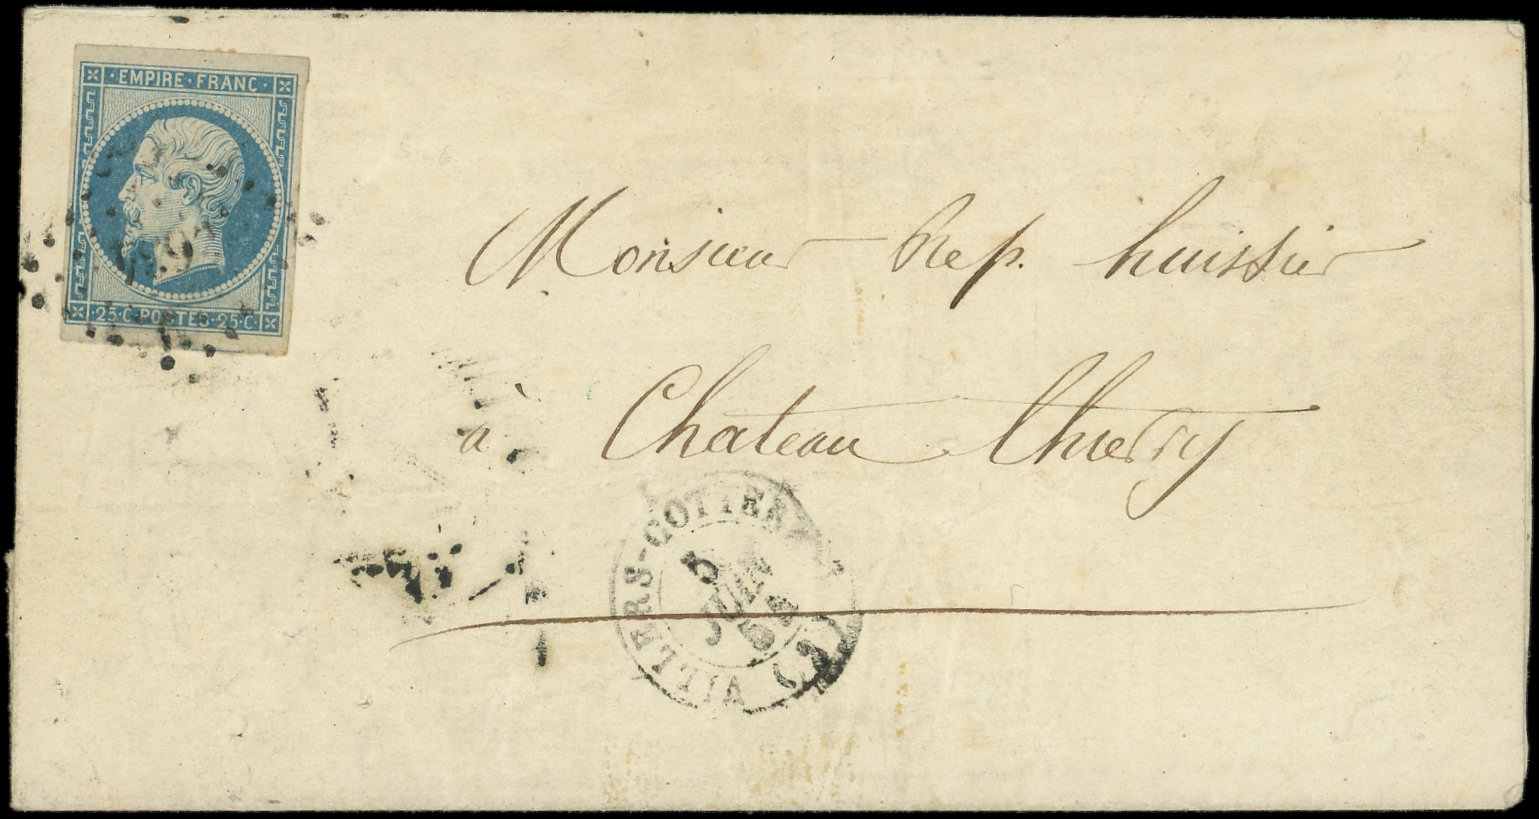 EMPIRE · FRANC ·
· 25 · C · POSTES · 25 · C ·
Monsieur Rep. huissier
à Chateau Thierry
VILLERS-COTTERE
5
JUIN
(2)